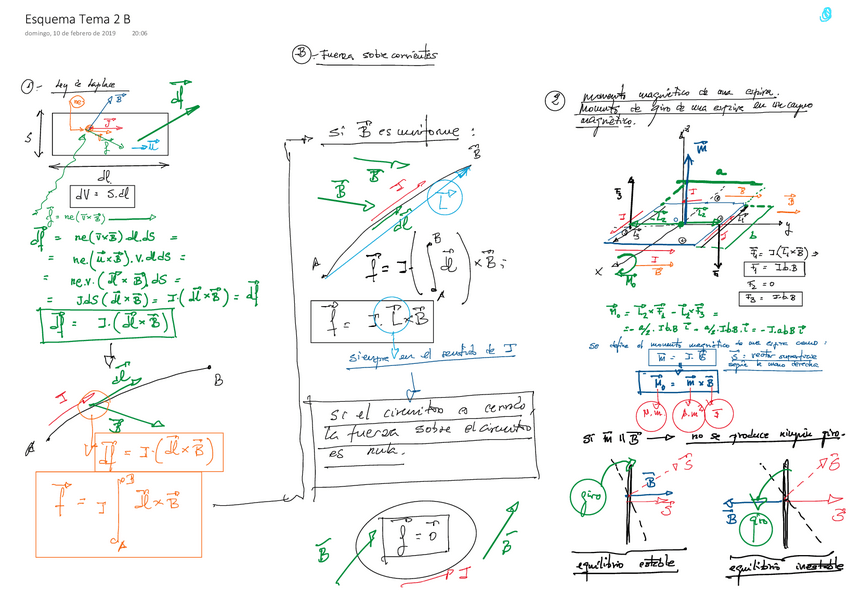 Esquema Tema 2 B
domingo, 10 de febrero de 2019 20:06
B.- Fuerza sobre corrientes
1.- Ley de Laplace
S
dl
dV = S.dl
f = ne(v×B)
df = ne(v×B) dl.dS =
= ne(u×B).v.dl dS =
= ne.v.(dl×B) dS =
= JdS(dl×B) = I.(dl×B) = df
df = I.(dl×B)
I
dl
B
A
B
df = I.(dl×B)
f = I ∫ dl×B
A
B
si B es uniforme:
B
B
I
dl
L
A
B
f = I.(∫ dl)×B =
f = I.L×B
siempre en el sentido de I
Si el circuito es cerrado,
la fuerza sobre el circuito
es nula.
f = 0
B
B
I
2
momento magnético de una espira.
Momento de giro de una espira en un campo
magnético.
z
m
a
B
y
b
x
M₀
F₁ = I(L₁×B) ⇒
F₁ = I.b.B
F₂ = 0
F₃ = I.b.B
M₀ = L₂×F₁ - L₂×F₃ =
= -a/2.I.b.B i - a/2.I.b.B i = -I.a.b.B i
Se define el momento magnético de una espira como:
m = I.S
S: vector superficie
según la mano derecha
M₀ = m×B
Si m || B → no se produce ningún giro.
giro
B
S
S
B
giro
S
S
equilibrio estable
equilibrio inestable